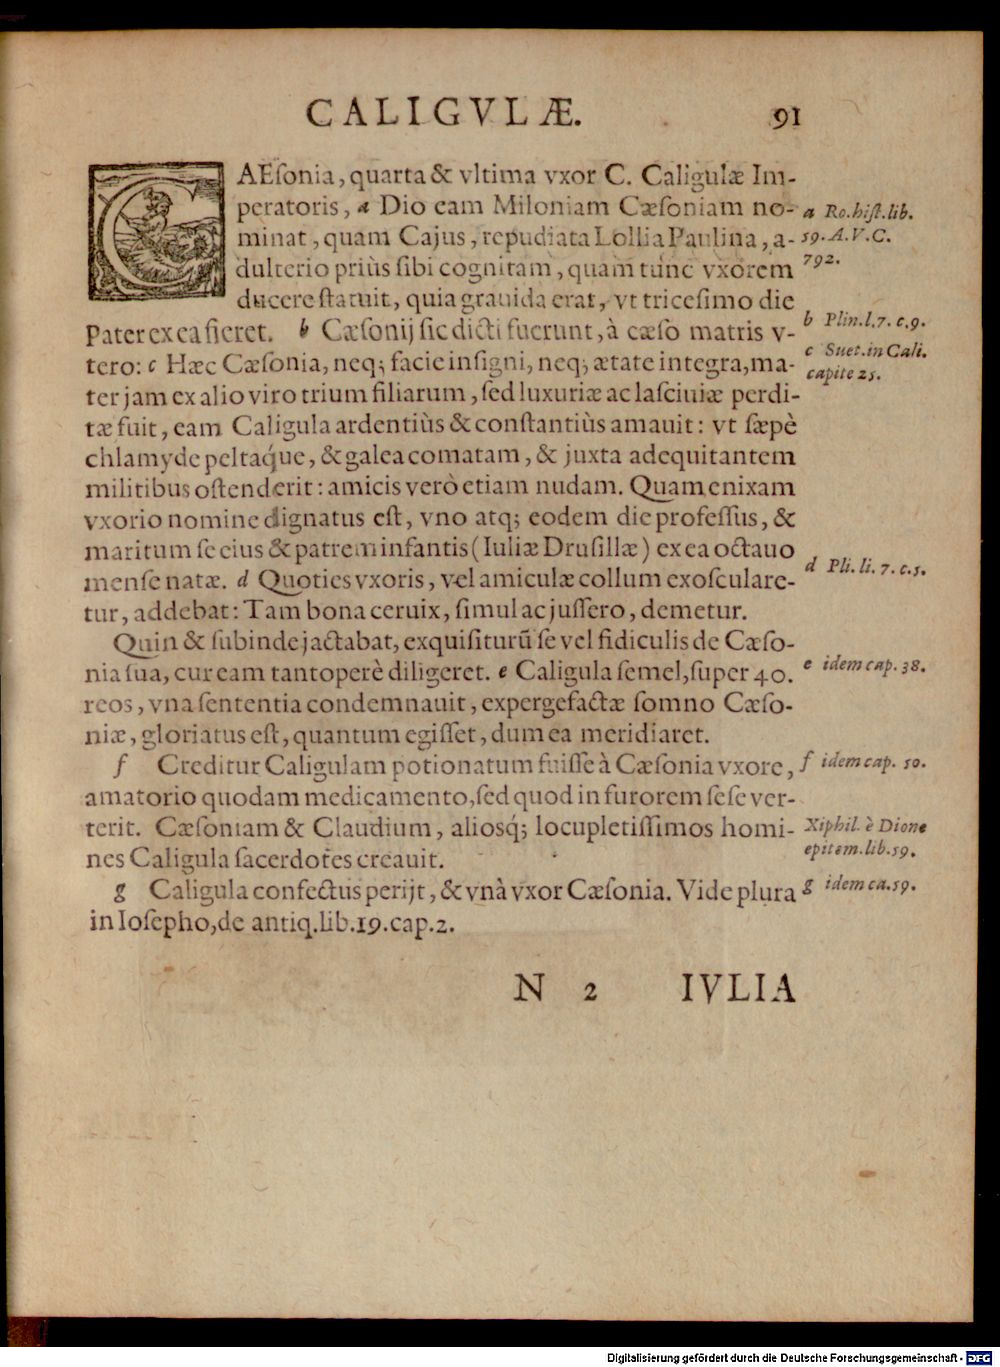 CALIGVLÆ. 91
CAEſonia, quarta & vltima vxor C. Caligulæ Im-
peratoris, a Dio eam Miloniam Cæſoniam no-
minat, quam Cajus, repudiata Lollia Paulina, a-
dulterio priùs ſibi cognitam, quam tunc vxorem
ducere ſtatuit, quia grauida erat, vt triceſimo die
Pater ex ea fieret. b Cæſonij ſic dicti fuerunt, à cæſo matris v-
tero: c Hæc Cæſonia, neq; facie inſigni, neq; ætate integra, ma-
ter jam ex alio viro trium filiarum, ſed luxuriæ ac laſciuiæ perdi-
tæ fuit, eam Caligula ardentiùs & conſtantiùs amauit: vt ſæpè
chlamyde peltaq́ue, & galea comatam, & juxta adequitantem
militibus oſtenderit: amicis verò etiam nudam. Quam enixam
vxorio nomine dignatus eſt, vno atq; eodem die profeſſus, &
maritum ſe eius & patrem infantis (Iuliæ Druſillæ) ex ea octauo
menſe natæ. d Quoties vxoris, vel amiculæ collum exoſculare-
tur, addebat: Tam bona ceruix, ſimul ac juſſero, demetur.
Quin & ſubinde jactabat, exquiſiturũ ſe vel fidiculis de Cæſo-
nia ſua, cur eam tantoperè diligeret. e Caligula ſemel, ſuper 40.
reos, vna ſententia condemnauit, expergefactæ ſomno Cæſo-
niæ, gloriatus eſt, quantum egiſſet, dum ea meridiaret.
f Creditur Caligulam potionatum fuiſſe à Cæſonia vxore,
amatorio quodam medicamento, ſed quod in furorem ſeſe ver-
terit. Cæſoniam & Claudium, aliosq́; locupletiſſimos homi-
nes Caligula ſacerdotes creauit.
g Caligula confectus perijt, & vnà vxor Cæſonia. Vide plura
in Ioſepho, de antiq. lib. 19. cap. 2.
N 2 IVLIA
a Ro. hiſt. lib.
59. A.V.C.
792.
b Plin. l. 7. c. 9.
c Suet. in Cali.
capite 25.
d Pli. li. 7. c. 5.
e idem cap. 38.
f idem cap. 50.
Xiphil. è Dione
epitem. lib. 59.
g idem ca. 59.
Digitalisierung gefördert durch die Deutsche Forschungsgemeinschaft - DFG